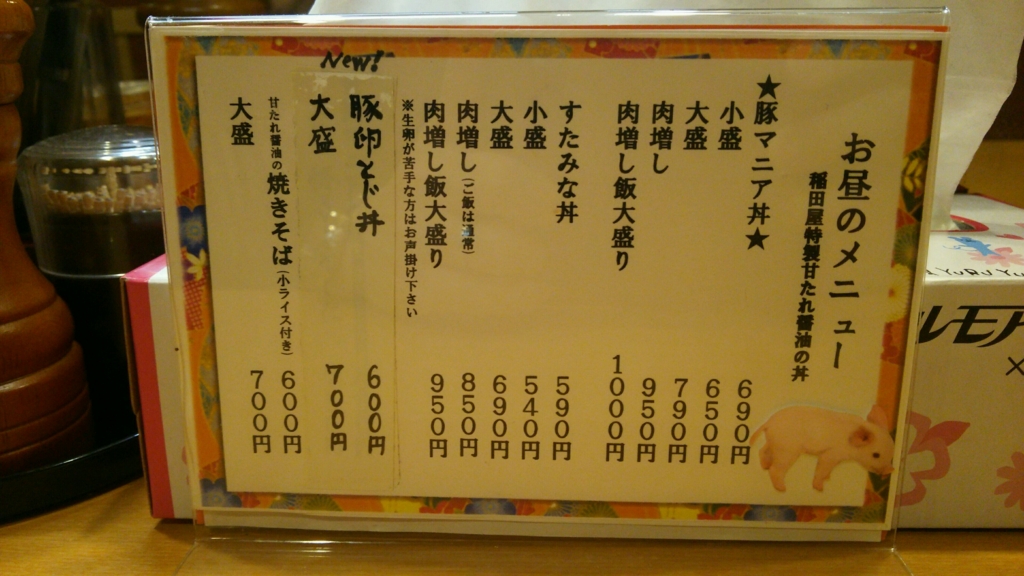 お昼のメニュー
稲田屋特製甘たれ醤油の丼
★豚マニア丼★ 690円
小盛 650円
大盛 790円
肉増し 950円
肉増し飯大盛り 1000円
すたみな丼 590円
小盛 540円
大盛 690円
肉増し(ご飯は通常) 850円
肉増し飯大盛り 950円
※生卵が苦手な方はお声掛け下さい
New!
豚卵とじ丼 600円
大盛 700円
甘たれ醤油の焼きそば(小ライス付き) 600円
大盛 700円
ルモア
YURU YU